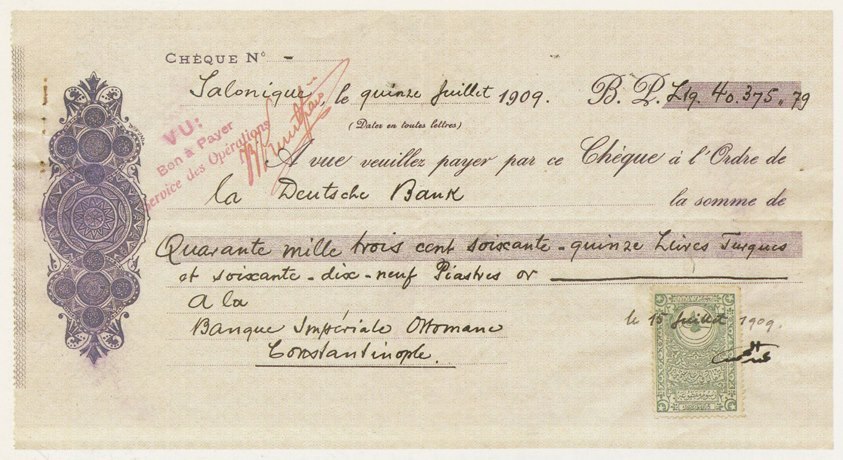 CHÈQUE Nº -
Salonique, le quinze Juillet 1909. B. P. Ltq. 40.375,, 79
(Dater en toutes lettres)
VU:
Bon à Payer
Service des Opérations
A vue veuillez payer par ce Chèque à l'Ordre de
la Deutsche Bank la somme de
Quarante mille trois cent soixante-quinze Livres Turques
et soixante-dix-neuf Piastres or
A la
Banque Impériale Ottomane
Constantinople.
le 15 Juillet 1909.